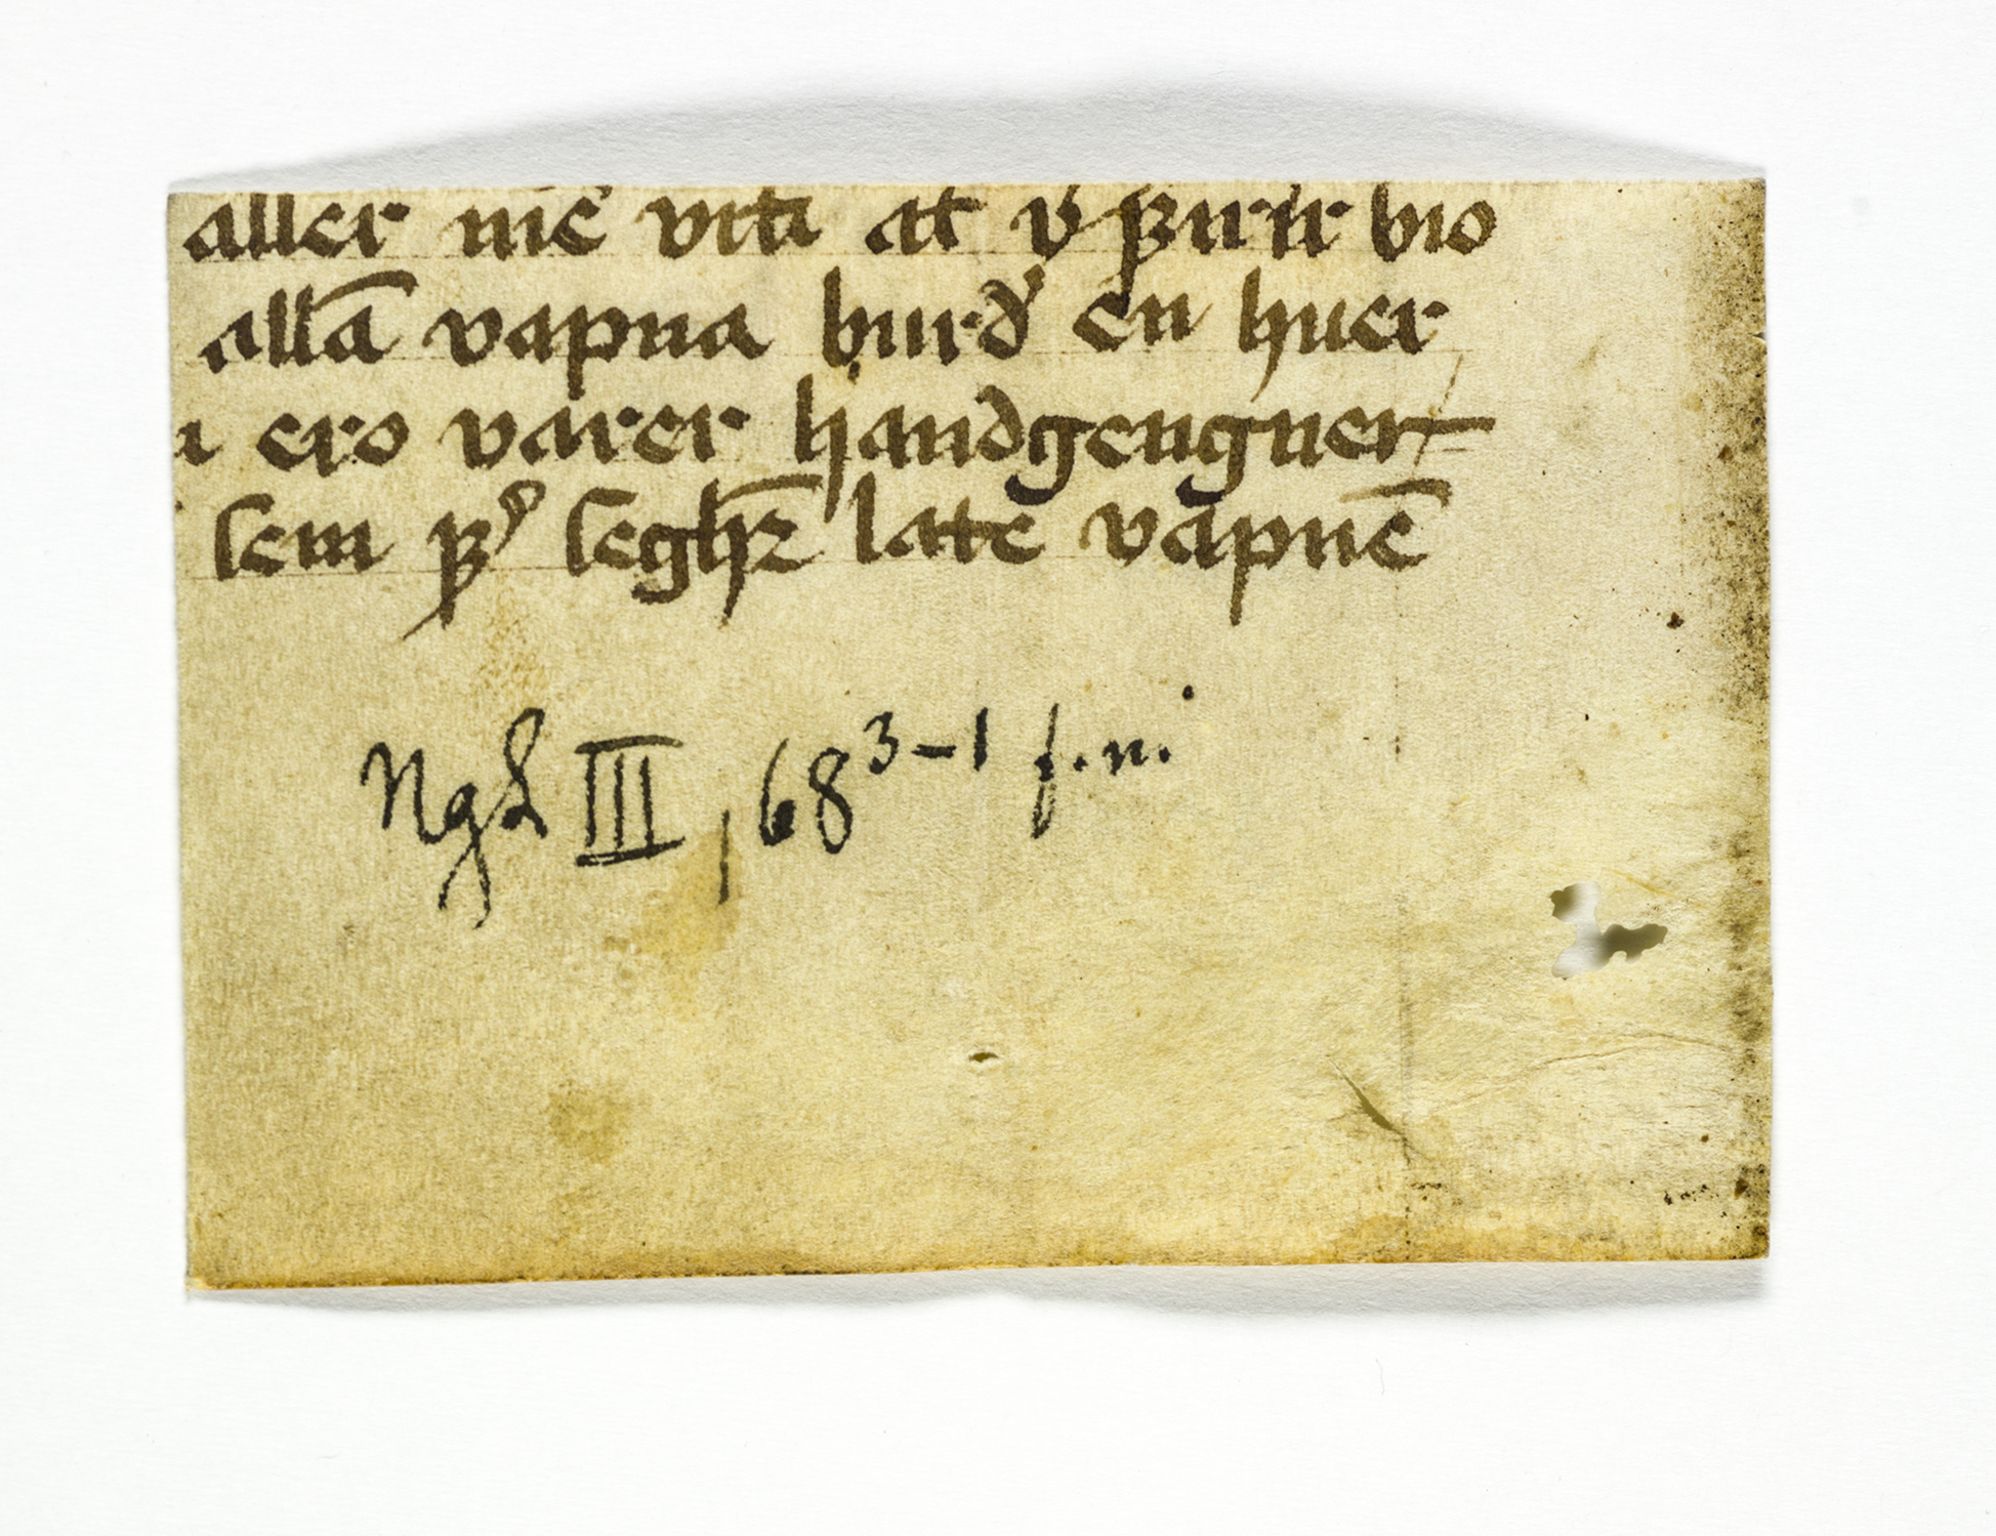 aller me̅ vita at v͛ ꝼirir bio
alla̅ vapna burd͛ en huer
a ero varer handgengner
sem þr͛ seghꝛ̅ late vapne̅
NgL III, 68³⁻¹ f. n.